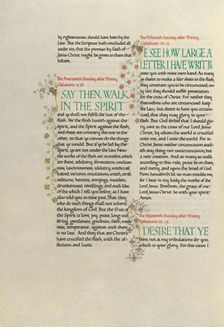 by righteousness should have been by
the Law. But the Scripture hath concluded all
under sin, that the promise by faith of Jesus
Christ might be given to them that believe.
The Fourteenth Sunday after Trinity
Galatians v. 16.
I SAY THEN, WALK
IN THE SPIRIT
and ye shall not fulfil the lust of the
flesh. For the flesh lusteth against
the spirit, and the spirit against the flesh;
and these are contrary the one to the
other; so that ye cannot do the things that ye
would. But if ye be led by the
Spirit, ye are not under the law. Now
the works of the flesh are manifest, which
are these, adultery, fornication,
uncleanness, lasciviousness, idolatry, witchcraft,
hatred, variance, emulations, wrath, strife,
seditions, heresies, envyings, murders,
drunkenness, revellings, and such like:
of the which I tell you before, as I have
also told you in time past, that they
who do such things shall not inherit
the kingdom of God. But the fruit of
the Spirit is love, joy, peace, long-suf-
fering, gentleness, goodness, faith, meek-
ness, temperance: against such there
is no law. And they that are Christ's
have crucified the flesh, with the af-
fections and lusts.
The Fifteenth Sunday after Trinity
Galatians vi. 11.
YE SEE HOW LARGE A
LETTER I HAVE WRITTEN
unto you with mine own hand. As many
as desire to make a fair shew in the flesh,
they constrain you to be circumcised;
only lest they should suffer persecution for
the cross of Christ. For neither they
themselves who are circumcised keep
the Law; but desire to have you
circumcised, that they may glory in your
flesh. But God forbid that I should glory
save in the cross of our Lord Jesus
Christ, by whom the world is crucified
unto me, and I unto the world. For in
Christ Jesus neither circumcision availeth
any thing, nor uncircumcision, but
a new creature. And as many as walk
according to this rule, peace be on them,
and mercy, and upon the Israel of God.
From henceforth let no man trouble me:
for I bear in my body the marks of the
Lord Jesus. Brethren, the grace of our
Lord Jesus Christ be with your spirit.
Amen.
The Sixteenth Sunday after Trinity
Ephesians iii. 13.
I DESIRE THAT YE
faint not at my tribulations for you,
which is your glory. For this cause I